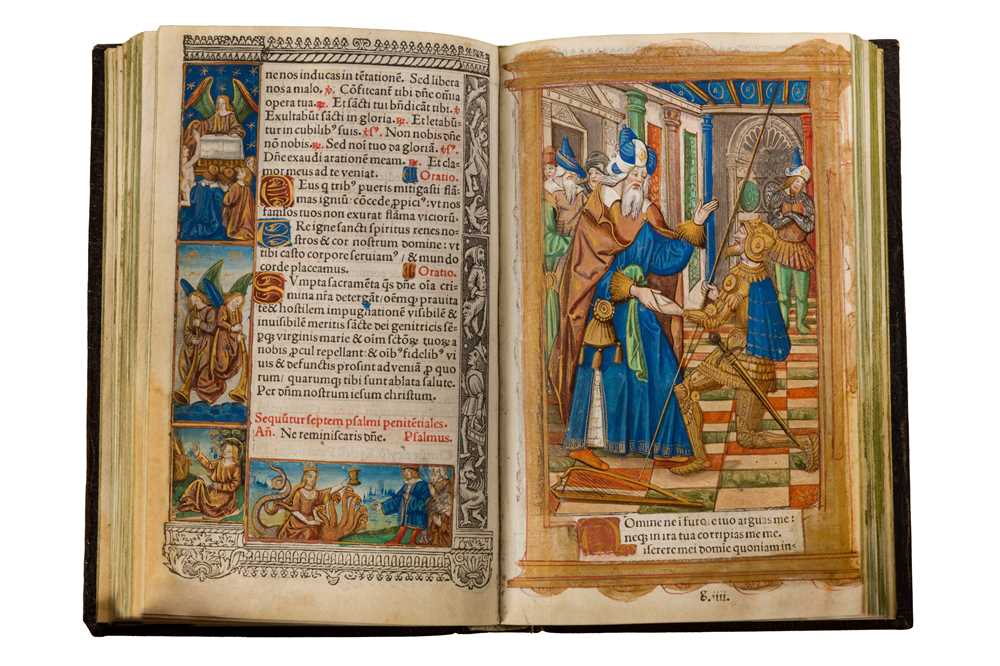 ne nos inducas in tẽtationẽ. Sed libera
nos a malo. ꝶ. Cõfiteant̃ tibi dñe oĩa
opera tua. ꝶ. Et sãcti tui bñdicãt tibi. ꝶ.
Exultabũt sãcti in gloria. ꝶ. Et letabũ-
tur in cubilibꝰ suis. ꝟ. Non nobis dñe
nõ nobis. ꝶ. Sed noĩ tuo da gloriã. ꝟ.
Dñe exaudi orationẽ meam. ꝶ. Et cla-
mor meus ad te veniat. Oratio.
Deus q tribꝰ pueris mitigasti flã-
mas igniũ: cõcede ꝓpiciꝰ: vt nos
famlos tuos non exurat flãma viciorũ.
URe igne sancti spiritus renes no-
stros & cor nostrum domine: vt
tibi casto corpore seruiamꝰ/ & mundo
corde placeamus. Oratio.
SVmpta sacramẽta q̃s dñe oĩa cri-
mina nr̃a detergãt/ oẽmq; prauita
tẽ & hostilem impugnationẽ visibilẽ &
inuisibilẽ meritis sãcte dei genitricis sẽ-
pq; virginis marie & oĩm sctõꝝ tuoꝝ a
nobis ꝓcul repellant: & oĩbꝰ fidelibꝰ vi
uis & defunctis prosint ad veniã, ꝓ quo
rum/ quarumq; tibi sunt ablata salute.
Per dñm nostrum iesum christum.
Sequũtur septem psalmi penitẽtiales.
Añ. Ne reminiscaris dñe. Psalmus.
Domine ne ĩ furore tuo arguas me:
neq; in ira tua corripias me me.
iserere mei domĩe quoniam in-
g.iiii.